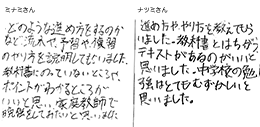 ミナミさん
どのような進め方をするのか
など流れや、予習や復習
のやり方を説明してもらいました。
教科書にのっていないところや、
ポイントがわかるところが
いいと思い、家庭教師で
勉強をしてみたいと思いました
ナツミさん
進め方や、やり方を教えてもら
いました。教科書とはちがう
テキストがあるのがいいと
思いました。中学校の勉
強はとてもむずかしいと
思いました。